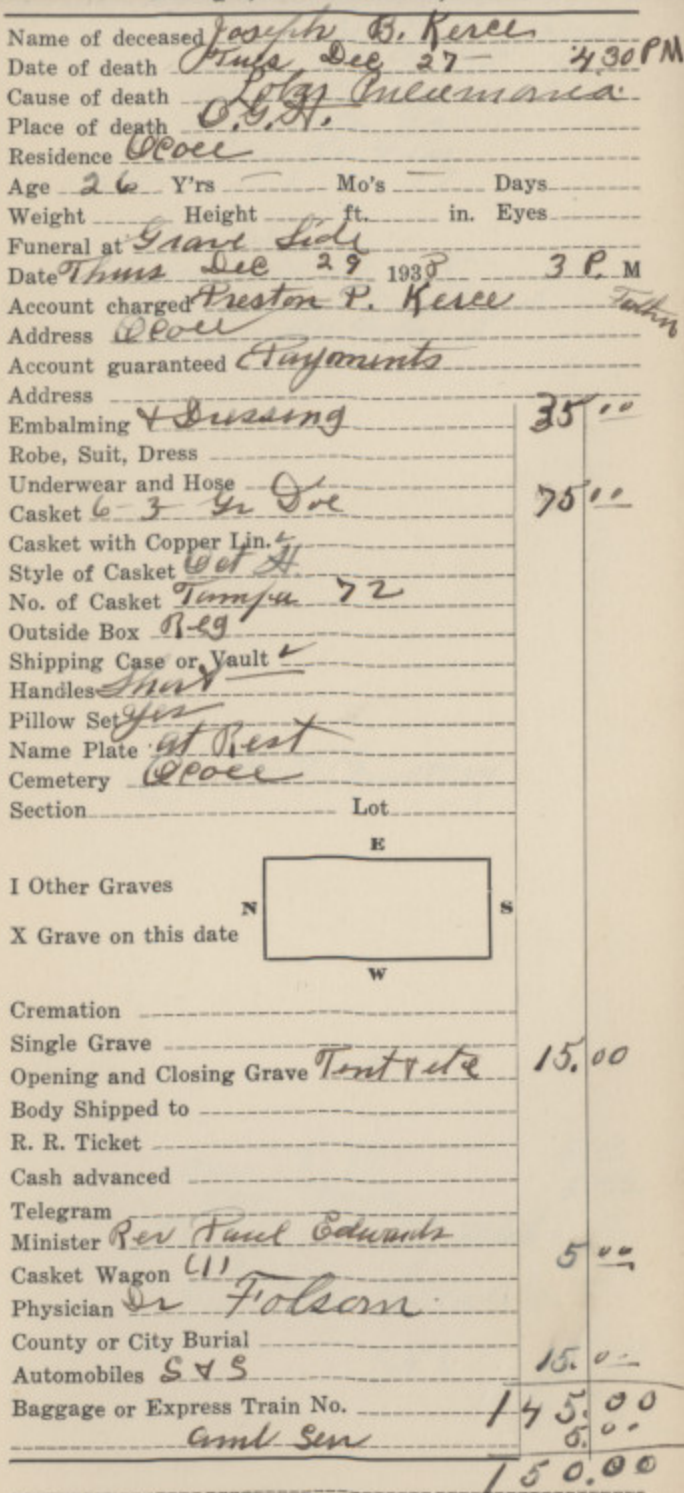 Name of deceased Joseph B. Kerce
Date of death Tues Dec 27 4 30 PM
Cause of death Lobar Pneumonia
Place of death O.G.H.
Residence Ocoee
Age 26 Y'rs Mo's Days
Weight Height ft. in. Eyes
Funeral at Grave Side
Date Thurs Dec 29 1938 3 P. M
Account charged Preston P. Kerce Father
Address Ocoee
Account guaranteed Payments
Address
Embalming & Dressing 35 00
Robe, Suit, Dress
Underwear and Hose
Casket 6-3 Gr Doe 75 00
Casket with Copper Lin.
Style of Casket Oct
No. of Casket Tampa 72
Outside Box Reg
Shipping Case or Vault ✓
Handles Short
Pillow Set Yes
Name Plate At Rest
Cemetery Ocoee
Section Lot
E
I Other Graves
N S
X Grave on this date
W
Cremation
Single Grave
Opening and Closing Grave Tent & etc 15.00
Body Shipped to
R. R. Ticket
Cash advanced
Telegram
Minister Rev Paul Edwards
Casket Wagon (1) 5 00
Physician Dr Folsom
County or City Burial
Automobiles S & S 15.00
Baggage or Express Train No. 145.00
Amb Ser 5.00
150.00